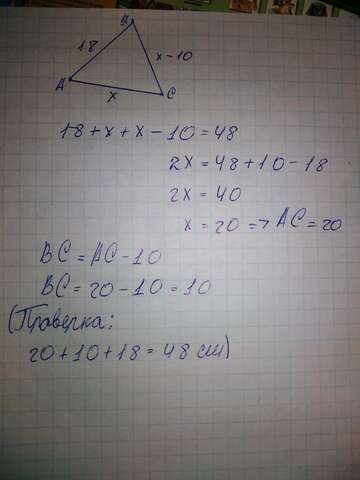 В
18
x - 10
А
x
С
18 + x + x - 10 = 48
2x = 48 + 10 - 18
2x = 40
x = 20 => AC = 20
BC = AC - 10
BC = 20 - 10 = 10
(Проверка:
20 + 10 + 18 = 48 см)